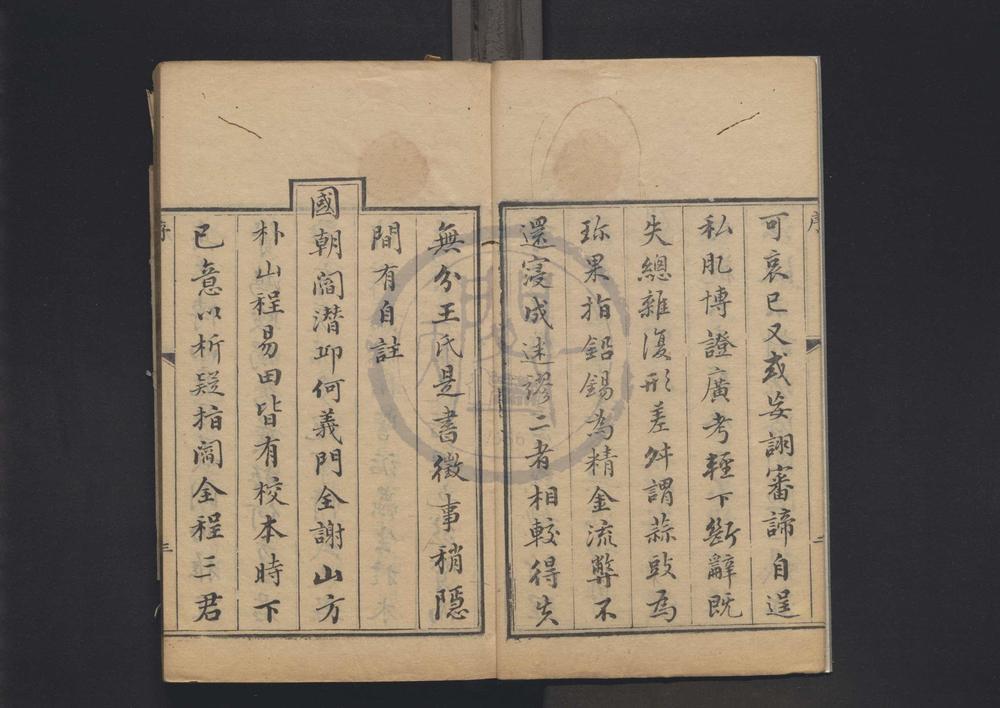 序
可哀已又或妄詡審諦自逞
私肊博證廣考輕下斷辭既
失總雜復形差舛謂蒜豉為
珎果指鉛錫為精金流弊不
還寖成迷謬二者相較得失
二
無分王氏是書徵事稍隱
間有自註
國朝閻潜邱何義門全謝山方
朴山程易田皆有校本時下
已意以析疑指閻全程三君
序
三